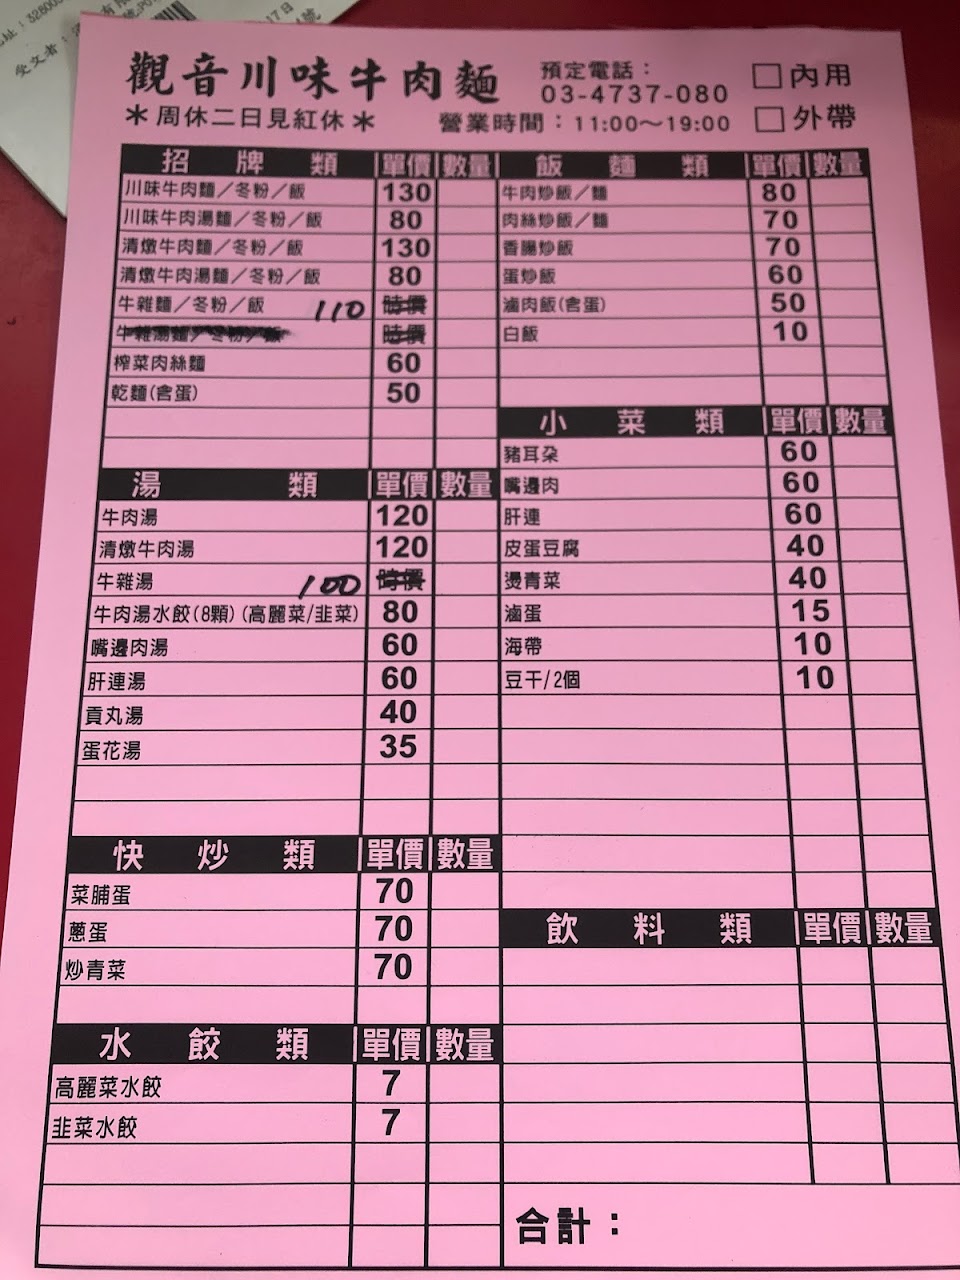 觀音川味牛肉麵
預定電話：
03-4737-080
□內用
＊周休二日見紅休＊
營業時間：11:00～19:00
□外帶
招牌類 單價 數量
川味牛肉麵／冬粉／飯 130
川味牛肉湯麵／冬粉／飯 80
清燉牛肉麵／冬粉／飯 130
清燉牛肉湯麵／冬粉／飯 80
牛雜麵／冬粉／飯 110 時價
牛雜湯麵／冬粉／飯 時價
榨菜肉絲麵 60
乾麵(含蛋) 50
湯類 單價 數量
牛肉湯 120
清燉牛肉湯 120
牛雜湯 100 時價
牛肉湯水餃(8顆)(高麗菜/韭菜) 80
嘴邊肉湯 60
肝連湯 60
貢丸湯 40
蛋花湯 35
快炒類 單價 數量
菜脯蛋 70
蔥蛋 70
炒青菜 70
水餃類 單價 數量
高麗菜水餃 7
韭菜水餃 7
飯麵類 單價 數量
牛肉炒飯／麵 80
肉絲炒飯／麵 70
香腸炒飯 70
蛋炒飯 60
滷肉飯(含蛋) 50
白飯 10
小菜類 單價 數量
豬耳朵 60
嘴邊肉 60
肝連 60
皮蛋豆腐 40
燙青菜 40
滷蛋 15
海帶 10
豆干/2個 10
飲料類 單價 數量
合計：